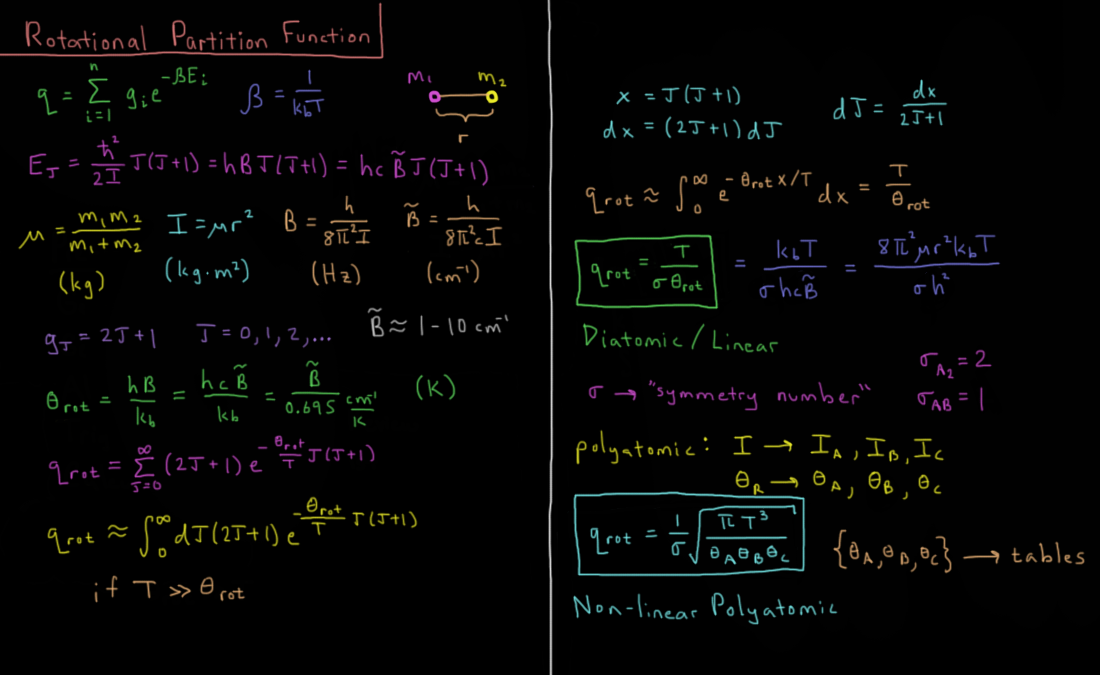 Rotational Partition Function
q = ∑_{i=1}^{n} gᵢe^{-βEᵢ} β = 1/(k_bT) m₁ m₂
r
E_J = ħ²/2I J(J+1) = hBJ(J+1) = hcB̃J(J+1)
μ = m₁m₂/(m₁+m₂) I = μr² B = h/(8π²I) B̃ = h/(8π²cI)
(kg) (kg·m²) (Hz) (cm⁻¹)
g_J = 2J+1 J = 0,1,2,... B̃ ≈ 1-10 cm⁻¹
θ_rot = hB/k_b = hcB̃/k_b = B̃/(0.695 cm⁻¹/K) (K)
q_rot = ∑_{J=0}^{∞} (2J+1) e^{-θ_rot/T J(J+1)}
q_rot ≈ ∫₀^∞ dJ(2J+1) e^{-θ_rot/T J(J+1)}
if T >> θ_rot
x = J(J+1)
dx = (2J+1)dJ dJ = dx/(2J+1)
q_rot ≈ ∫₀^∞ e^{-θ_rot x/T} dx = T/θ_rot
q_rot = T/(σθ_rot) = k_bT/(σhcB̃) = 8π²μr²k_bT/(σh²)
Diatomic/Linear
σ → "symmetry number" σ_{A₂} = 2
σ_{AB} = 1
polyatomic: I → I_A, I_B, I_C
θ_R → θ_A, θ_B, θ_C
q_rot = 1/σ √(πT³/(θ_Aθ_Bθ_C)) {θ_A,θ_B,θ_C} → tables
Non-linear Polyatomic